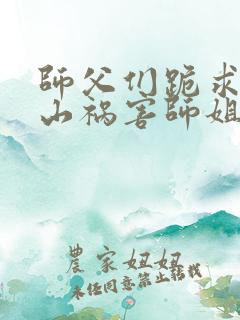 師父们跪求
山祸害師姐
農家妞妞
未任同意禁止转载